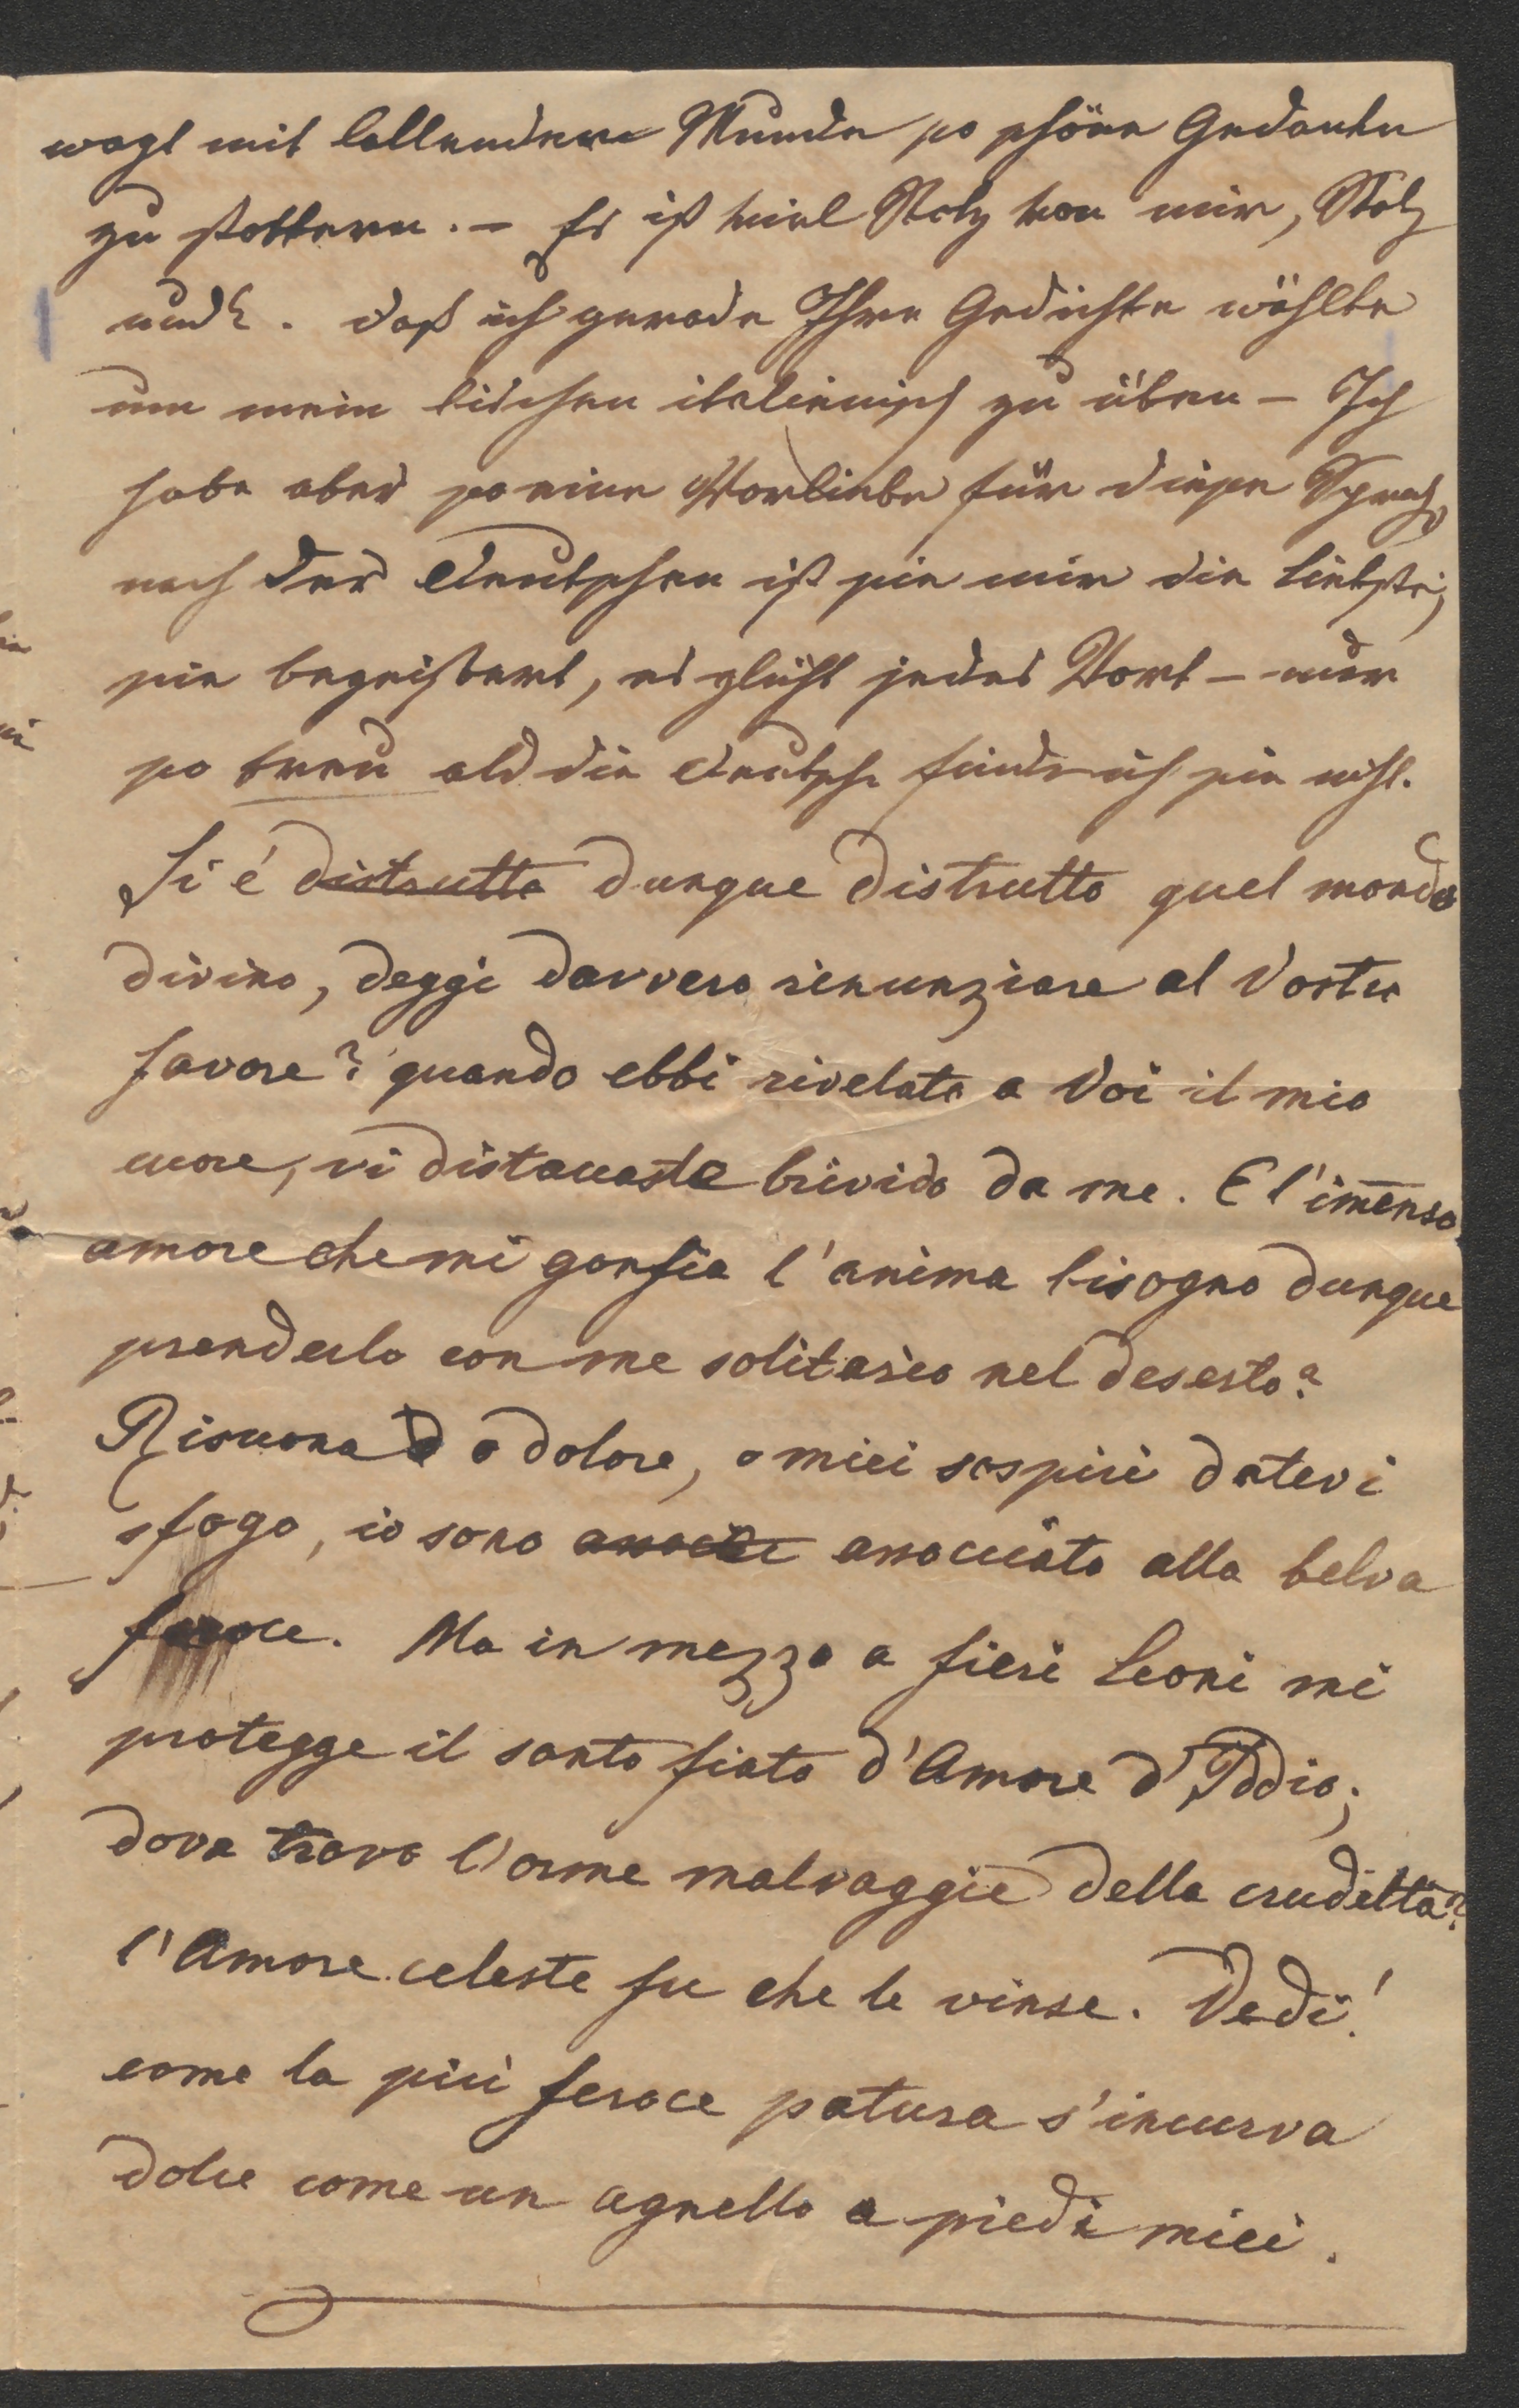 wagt mit lallendem Munde so schöne Gedanken
zu stottern. – Es ist viel Stolz von mir, Stolz
daß ich gerade Ihre Gedichte wählte
um mein bischen italienisch zu üben – Ich
habe aber so eine Vorliebe für diese Sprach,
nach der deutschen ist sie mir die liebste;
sie begeistert, es glüht jedes Wort – nur
so treu als die deutsche finde ich sie nicht.
Si é distrutto dunque distrutto quel mondo
divino, deggi davvero rinunziare al Vostro
favore? quando ebbi rivelato a Voi il mio
cuore, vi distaccaste brivido da me. E l'im̅enso
amore che mi gonfia l'anima bisogno dunque
prenderlo con me solitario nel deserto?
Risuona o dolore, o miei sospiri datevi
sfogo, io sono associato alla belva
feroce. Ma in mezzo a fieri Leoni mi
protegge il santo fiato d'Amore d'Iddio;
dova trovo l'orme malvaggie della crudeltà?
l'Amore celeste fu che le vinse. Vedi!
come la più feroce patura s'incurva
dolce come un agnello a piedi miei.